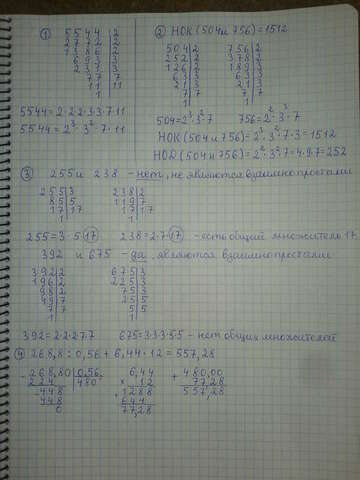 ① 5544|2
2772|2
1386|2
693|3
231|3
77|7
11|11
1|
5544=2·2·2·3·3·7·11
5544=2³·3²·7·11
② НОК(504 и 756)=1512
504|2 756|2
252|2 378|2
126|2 189|3
63|3 63|3
21|3 21|3
7|7 7|7
1| 1|
504=2³·3²·7 756=2²·3³·7
НОК(504 и 756)=2³·3³·7=1512
НОД(504 и 756)=2²·3²·7=4·9·7=252
③ 255 и 238 - нет, не являются взаимно простыми
255|3 238|2
85|5 119|7
17|17 17|17
1| 1|
255=3·5·17 238=2·7·17 - есть общий множитель 17
392 и 675 - да, являются взаимно простыми
392|2 675|3
196|2 225|3
98|2 75|3
49|7 25|5
7|7 5|5
1| 1|
392=2·2·2·7·7 675=3·3·3·5·5 - нет общих множителей
④ 268,8:0,56+6,44·12=557,28
-268,80|0,56 6,44 +480,00
224 |480 ×12 77,28
448 1288 557,28
448 +644
0 77,28